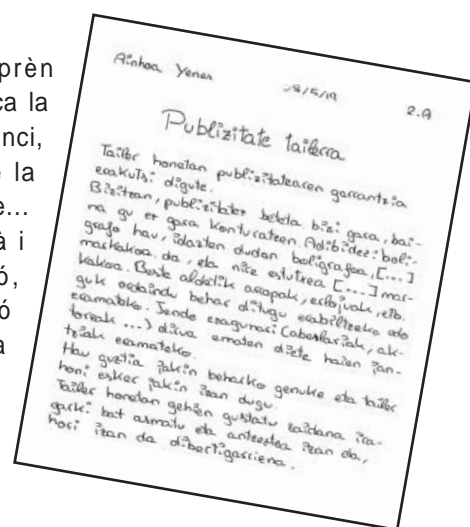 prèn
ca la
nci,
la
e...
à i
ó,
ó
a
Ainhoa Yenes
18/5/19
2.A
Publizitate tailerra
Tailer honetan publizitatearen garrantzia
erakutsi digute.
Bizitzan, publizitatez beteta bizi gara, bai-
na gu ez gara konturatzen. Adibidez: boli-
grafo hau, idazten dudan boligrafoa, [...]
markakoa da, eta nire estutxea [...] mar-
kakoa. Beste aldetik arropak, erlojuak, etb.
guk ordaindu behar ditugu erabiltzeko edo
eramateko. Jende ezagunari (abeslariak, ak-
toreak ...) dirua ematen diete haien jan-
tziak eramateko.
Hau guztia jakin beharko genuke eta tailer
honi esker jakin izan dugu.
Tailer honetan gehien gustatu zaidana ira-
garki bat asmatu eta antzeztea izan da,
hori izan da dibertigarriena.